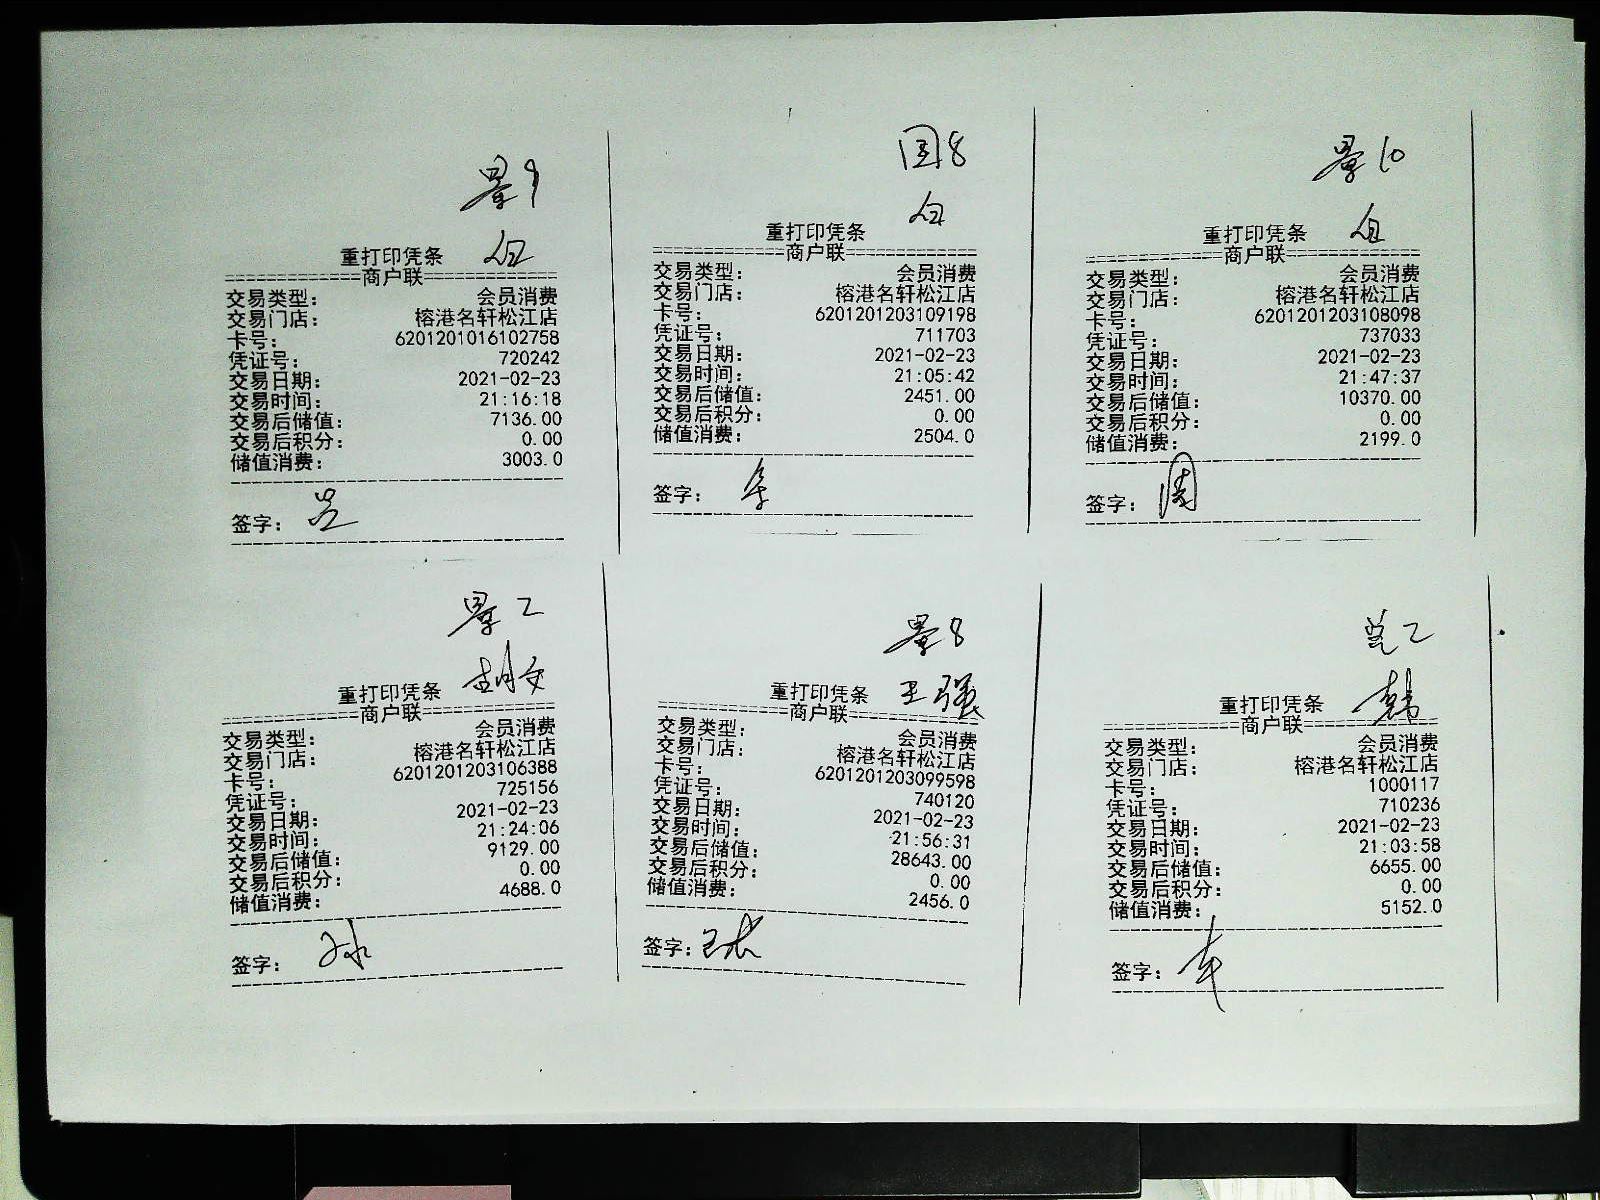 重打印凭条
商户联
交易类型： 会员消费
交易门店： 榕港名轩松江店
卡号： 6201201016102758
凭证号： 720242
交易日期： 2021-02-23
交易时间： 21:16:18
交易后储值： 7136.00
交易后积分： 0.00
储值消费： 3003.0
签字：
国8
重打印凭条
商户联
交易类型： 会员消费
交易门店： 榕港名轩松江店
卡号： 6201201203109198
凭证号： 711703
交易日期： 2021-02-23
交易时间： 21:05:42
交易后储值： 2451.00
交易后积分： 0.00
储值消费： 2504.0
签字：
10
重打印凭条
商户联
交易类型： 会员消费
交易门店： 榕港名轩松江店
卡号： 6201201203108098
凭证号： 737033
交易日期： 2021-02-23
交易时间： 21:47:37
交易后储值： 10370.00
交易后积分： 0.00
储值消费： 2199.0
签字： 周
胡文
重打印凭条
商户联
交易类型： 会员消费
交易门店： 榕港名轩松江店
卡号： 6201201203106388
凭证号： 725156
交易日期： 2021-02-23
交易时间： 21:24:06
交易后储值： 9129.00
交易后积分： 0.00
储值消费： 4688.0
签字：
8
王强
重打印凭条
商户联
交易类型： 会员消费
交易门店： 榕港名轩松江店
卡号： 6201201203099598
凭证号： 740120
交易日期： 2021-02-23
交易时间： 21:56:31
交易后储值： 28643.00
交易后积分： 0.00
储值消费： 2456.0
签字：
韩
重打印凭条
商户联
交易类型： 会员消费
交易门店： 榕港名轩松江店
卡号： 1000117
凭证号： 710236
交易日期： 2021-02-23
交易时间： 21:03:58
交易后储值： 6655.00
交易后积分： 0.00
储值消费： 5152.0
签字：